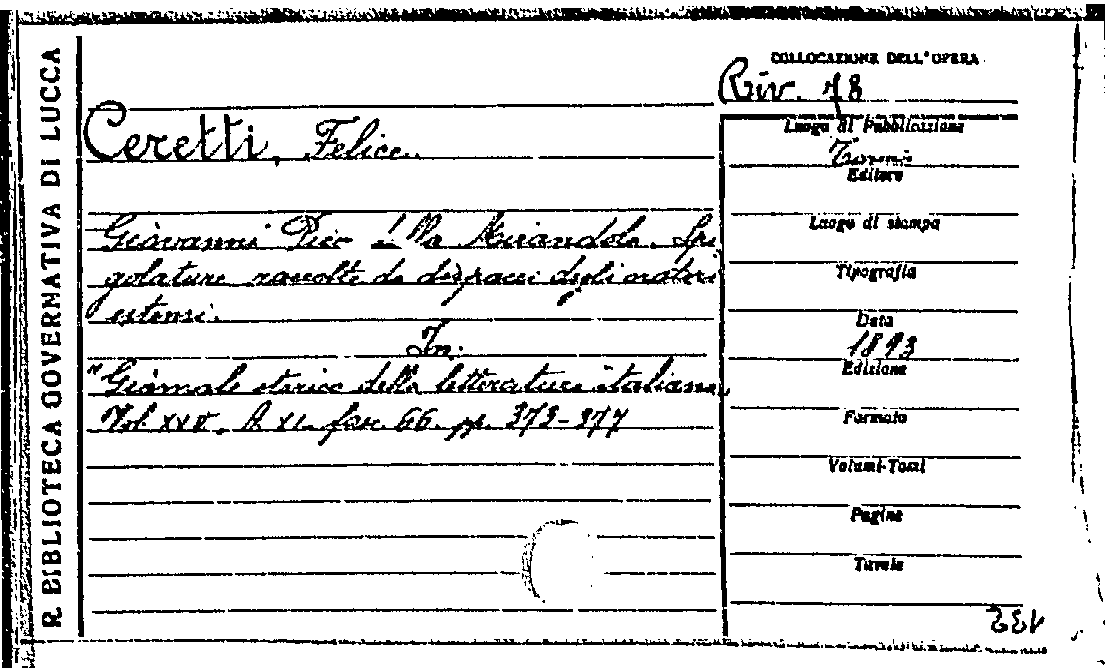 R. BIBLIOTECA GOVERNATIVA DI LUCCA
COLLOCAZIONE DELL'OPERA
Riv. 78
Ceretti, Felice.
Giovanni Pico della Mirandola. Spi
golature raccolte da dispacci degli oratori
estensi.
In:
"Giornale storico della letteratura italiana,
Vol. XXII. A. XI. fasc. 66. pp. 373-377
Luogo di Pubblicazione
Torino
Editore
Luogo di stampa
Tipografia
Data
1893
Edizione
Formato
Volumi-Tomi
Pagine
Tavole
132